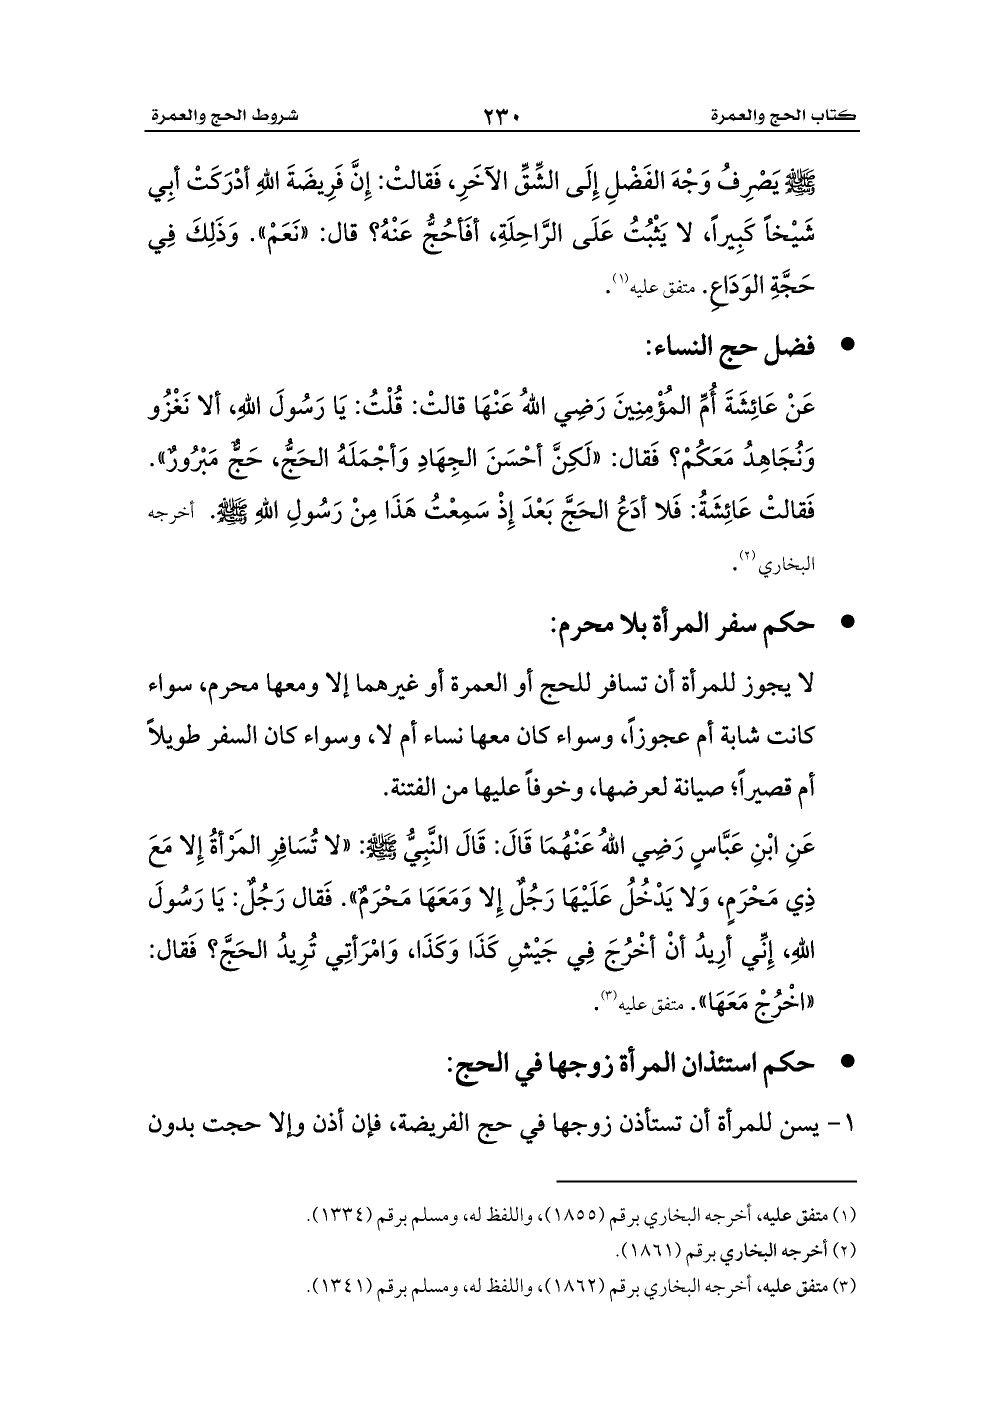 كتاب الحج والعمرة ٢٣٠ شروط الحج والعمرة
ﷺ يَصْرِفُ وَجْهَ الفَضْلِ إِلَى الشِّقِّ الآخَرِ، فَقالتْ: إِنَّ فَرِيضَةَ اللهِ أدْرَكَتْ أبِي
شَيْخاً كَبِيراً، لا يَثْبُتُ عَلَى الرَّاحِلَةِ، أفَأحُجُّ عَنْهُ؟ قال: «نَعَمْ». وَذَلِكَ فِي
حَجَّةِ الوَدَاعِ. متفق عليه(١).
• فضل حج النساء:
عَنْ عَائِشَةَ أُمِّ المؤْمِنِينَ رَضِي اللهُ عَنْهَا قالتْ: قُلْتُ: يَا رَسُولَ اللهِ، ألا نَغْزُو
وَنُجَاهِدُ مَعَكُمْ؟ فَقال: «لَكِنَّ أحْسَنَ الجِهَادِ وَأجْمَلَهُ الحَجُّ، حَجٌّ مَبْرُورٌ».
فَقالتْ عَائِشَةُ: فَلا أدَعُ الحَجَّ بَعْدَ إِذْ سَمِعْتُ هَذَا مِنْ رَسُولِ اللهِ ﷺ. أخرجه
البخاري(٢).
• حكم سفر المرأة بلا محرم:
لا يجوز للمرأة أن تسافر للحج أو العمرة أو غيرهما إلا ومعها محرم، سواء
كانت شابة أم عجوزاً، وسواء كان معها نساء أم لا، وسواء كان السفر طويلاً
أم قصيراً؛ صيانة لعرضها، وخوفاً عليها من الفتنة.
عَنِ ابْنِ عَبَّاسٍ رَضِي اللهُ عَنْهُمَا قَالَ: قَالَ النَّبِيُّ ﷺ: «لا تُسَافِرِ المَرْأةُ إِلا مَعَ
ذِي مَحْرَمٍ، وَلا يَدْخُلُ عَلَيْهَا رَجُلٌ إِلا وَمَعَهَا مَحْرَمٌ». فَقال رَجُلٌ: يَا رَسُولَ
اللهِ، إِنِّي أرِيدُ أنْ أخْرُجَ فِي جَيْشِ كَذَا وَكَذَا، وَامْرَأتِي تُرِيدُ الحَجَّ؟ فَقال:
«اخْرُجْ مَعَهَا». متفق عليه(٣).
• حكم استئذان المرأة زوجها في الحج:
١- يسن للمرأة أن تستأذن زوجها في حج الفريضة، فإن أذن وإلا حجت بدون
(١) متفق عليه، أخرجه البخاري برقم (١٨٥٥)، واللفظ له، ومسلم برقم (١٣٣٤).
(٢) أخرجه البخاري برقم (١٨٦١).
(٣) متفق عليه، أخرجه البخاري برقم (١٨٦٢)، واللفظ له، ومسلم برقم (١٣٤١).